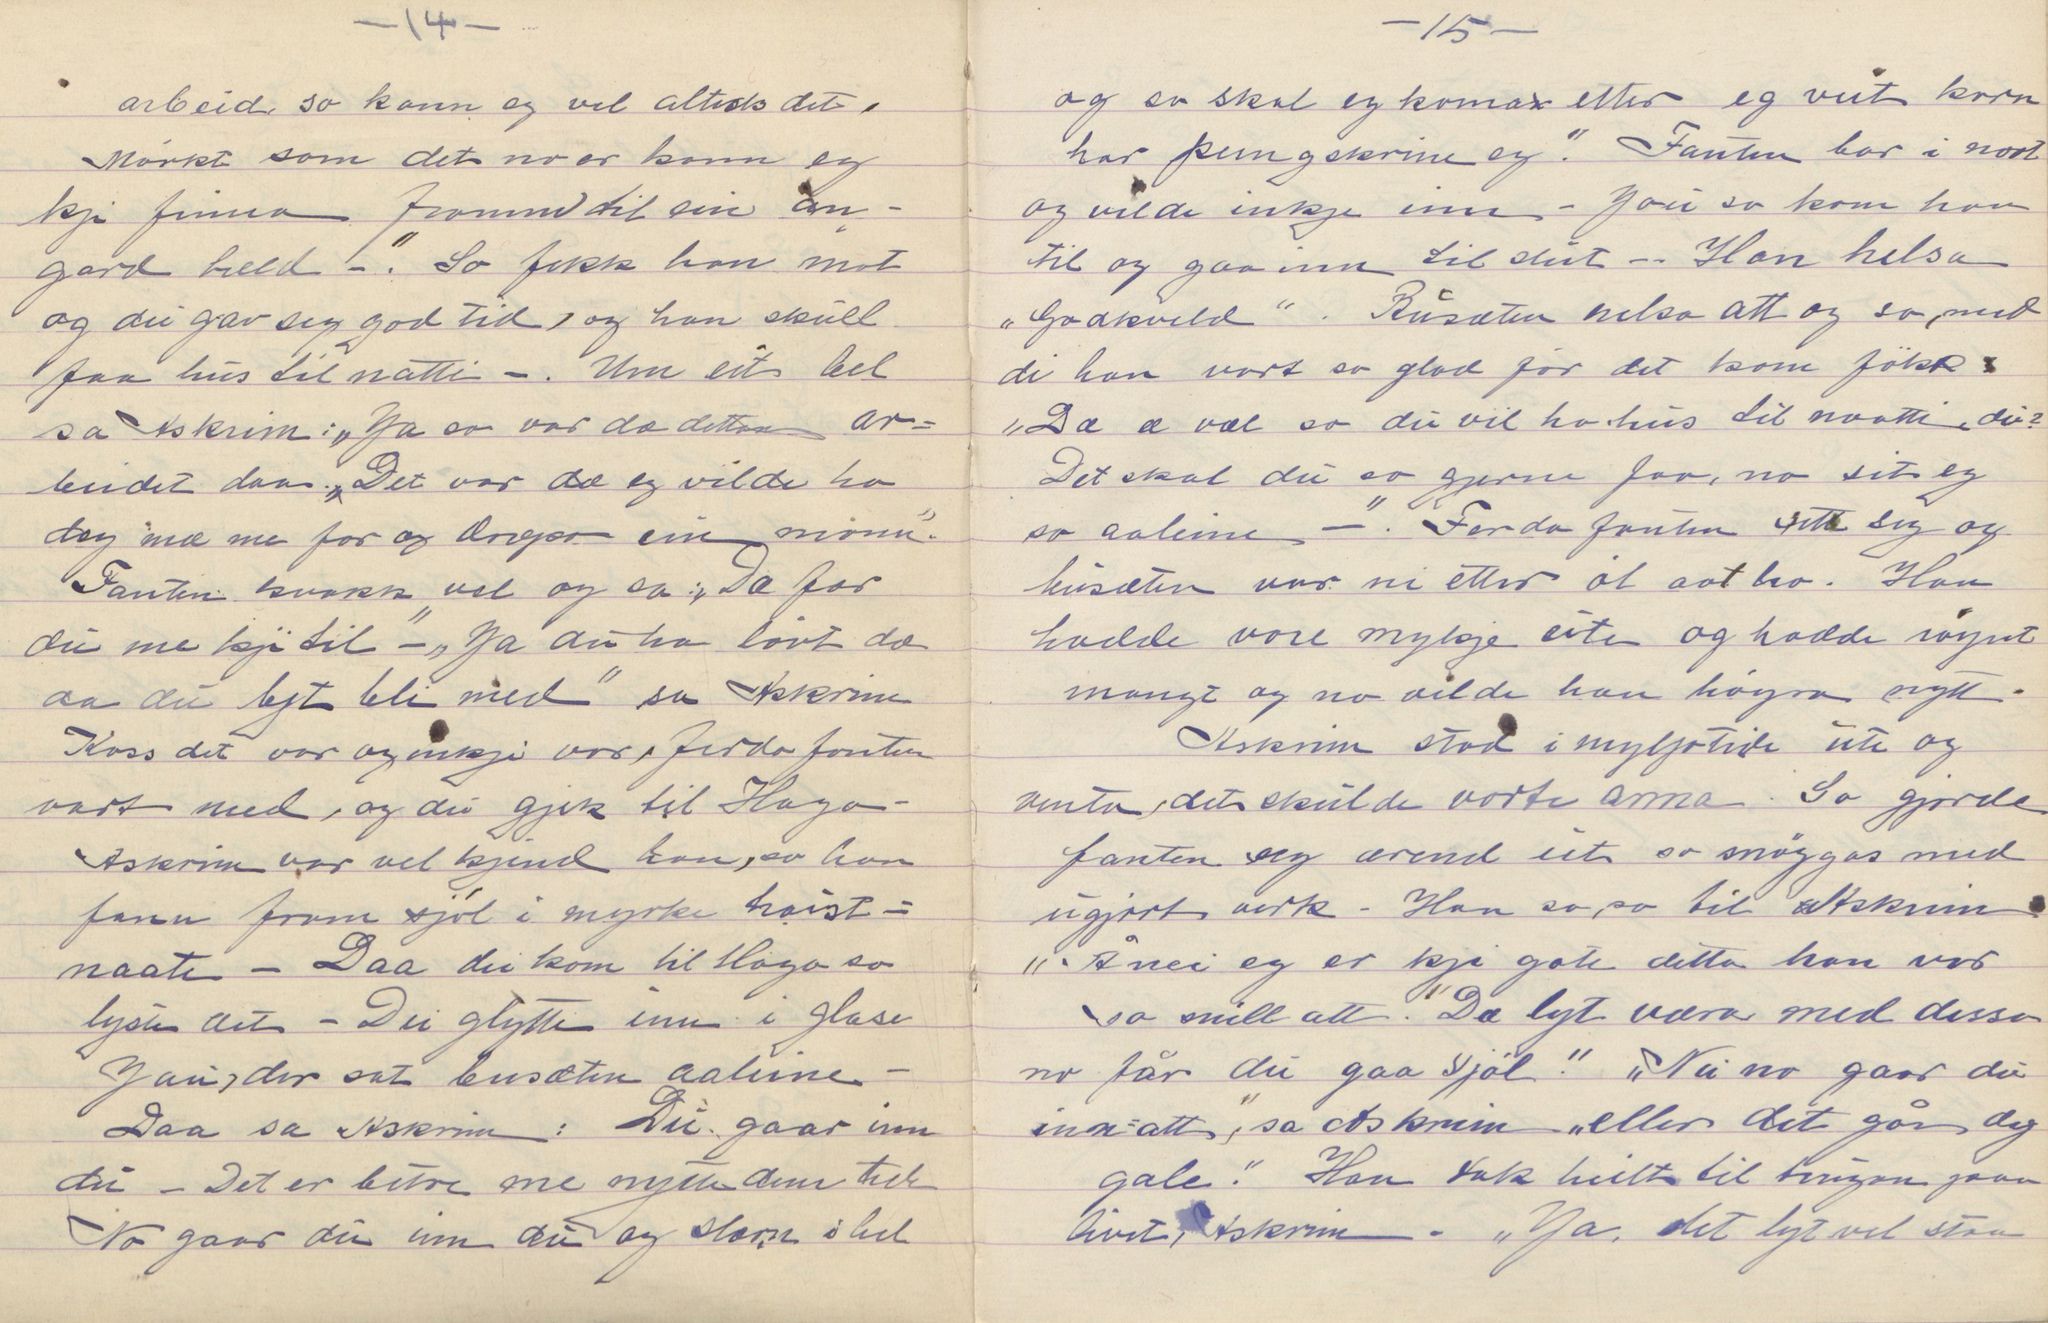 -14-
arbeid, so kann eg vel alteds det.
Mörkt som det no er kann eg
kji finna framm til ein an-
gard held -." So fekk han mot
og dei gav seg god tid, og han skull
faa hus til natti -. Um eit bel
sa Askrim: "Ja so var da detta ar-
beidet daa. "Det var dæ eg vilde ha
deg mæ me for og drepa ein mann".
Fanten kvakk vel og sa: "Dæ far
du me kji til" - "Ja du ha lovt dæ
aa du lyt bli med" sa Askrim
Koss det var og inkji var, ferdafanten
vart med, og dei gjek til Haga -
Askrim var vel kjend han, so han
fann fram sjöl i myrke haist=
naate - Daa dei kom til Haga so
lyste det - Dei glytte inn i glase
Jau, der sat busæten aaleine -
Daa sa Askrim: Du gaar inn
du - Det er betre me nytte den tek
No gaar du inn du og slær i hel
-15-
og so skal eg koma etter eg veit korn
har pungskrine eg". Fanten bar i nort
og vilde inkje inn - Jau so kom han
til og gaa inn til slut -- Han helsa
"Godkveld". Busæten helsa att og sa, med
di han vart so glad for det kom fökk:
"Dæ æ væl so du vil ha hus til naatti, du?
Det skal du so gjerne faa, no sit eg
so aaleine -". Ferdafanten sette seg og
busæten var ni etter öl aat ho. Han
hadde vore mykje ute og hadde röynt
mangt og no vilde han höyra nytt.
Askrim stod i myljotide ute og
venta, det skulde vorte anna. So gjorde
fanten seg ærend ut so snöggas med
ugjort verk - Han sa so til Askrim
"Å nei eg er kji gote detta han var
so snill att." "Dæ lyt væra med dessa
no får du gaa sjöl." "Nei no gaar du
inn att", sa Askrim "eller det går deg
gale." Han tok heilt til tvingan paa
livet, Askrim - "Ja, det lyt vel staa